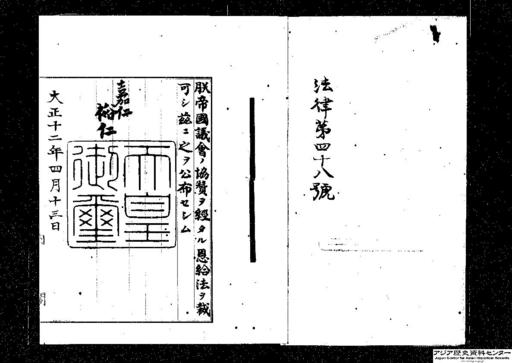 法律第四十八號
朕帝國議會ノ協賛ヲ經タル恩給法ヲ裁
可シ玆ニ之ヲ公布セシム
嘉仁
裕仁
天皇
御璽
大正十二年四月十三日
アジア歴史資料センター
Japan Center for Asian Historical Records